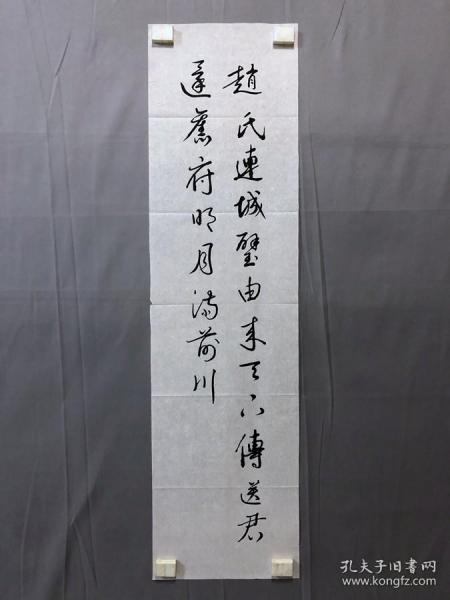 趙氏連城璧由来天下傳送君
還舊府明月满前川
孔夫子旧书网
www.kongfz.com